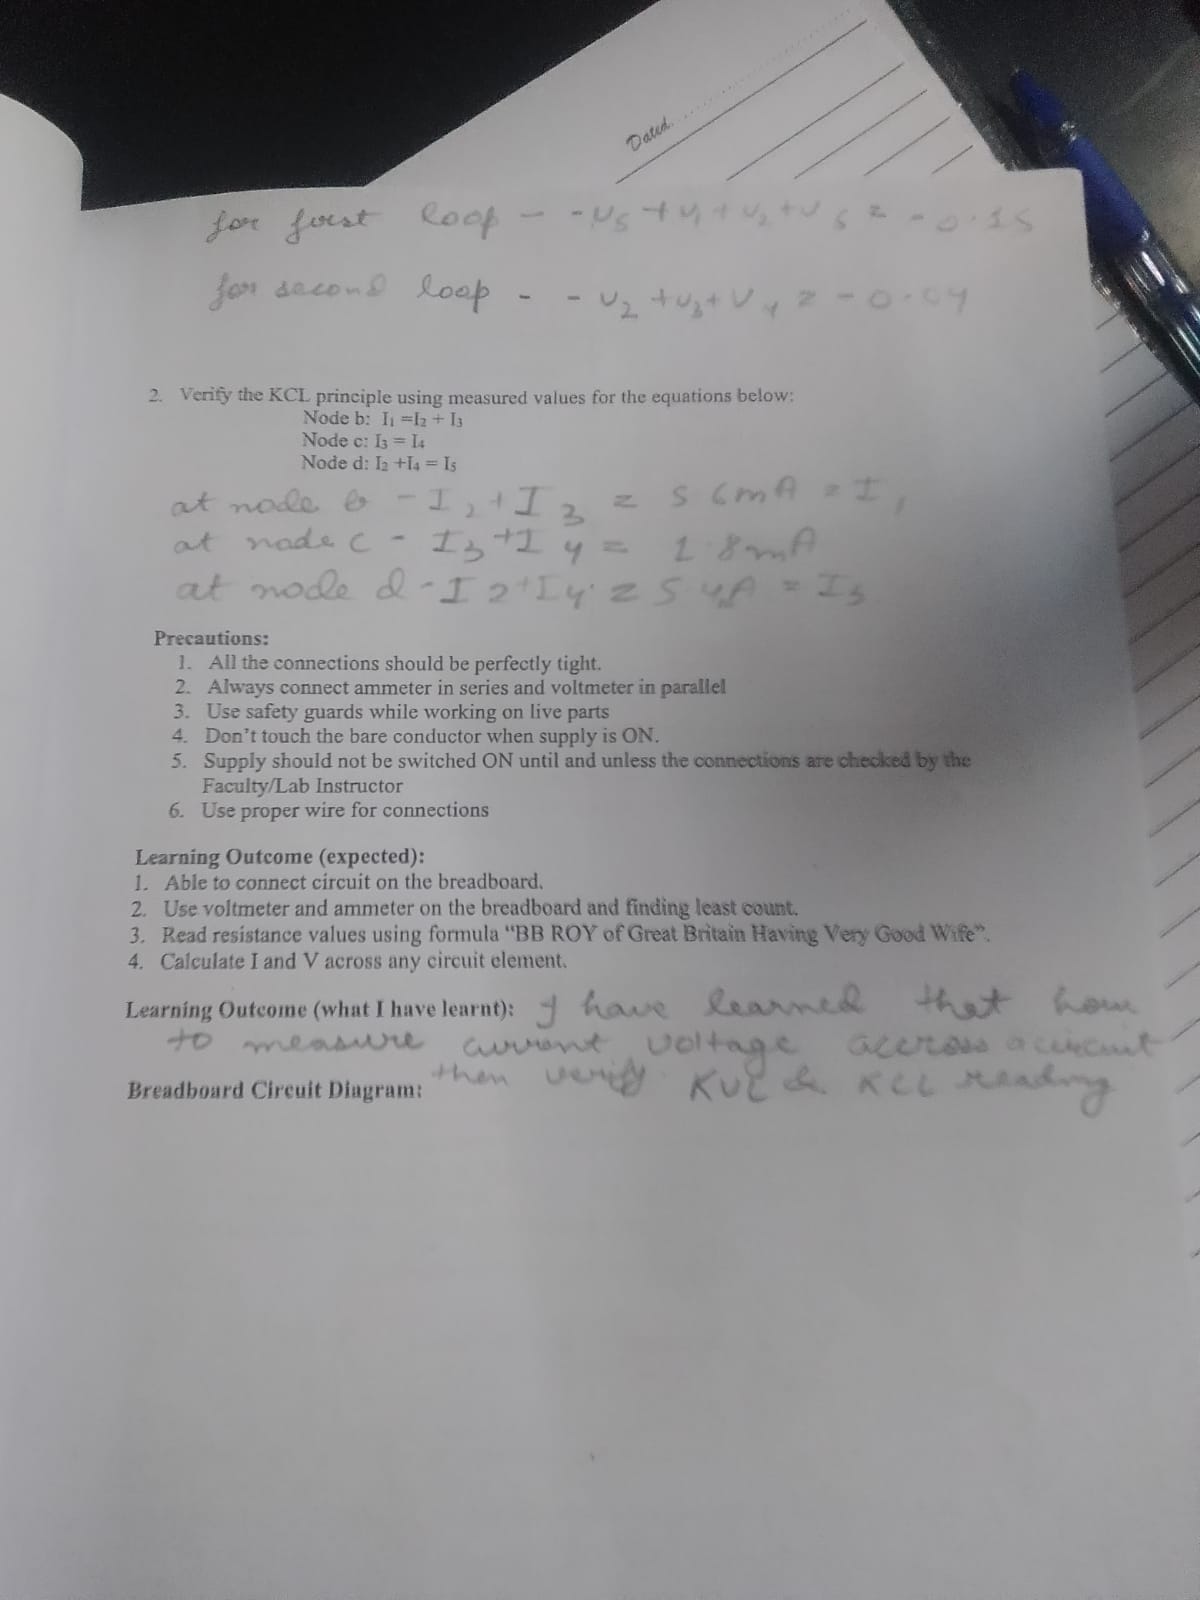 Dated
for first loop - -V5 + V1 + V2 + V5 = -0.15
for second loop - - V2 + V3 + V4 = -0.04
2. Verify the KCL principle using measured values for the equations below:
Node b: I1 =I2 + I3
Node c: I3 = I4
Node d: I2 +I4 = I5
at node b - I2 + I3 = 5 6mA = I1
at node c - I3 + I4 = 1.8mA
at node d - I2 + I4 = 5 4A = I5
Precautions:
1. All the connections should be perfectly tight.
2. Always connect ammeter in series and voltmeter in parallel
3. Use safety guards while working on live parts
4. Don't touch the bare conductor when supply is ON.
5. Supply should not be switched ON until and unless the connections are checked by the
Faculty/Lab Instructor
6. Use proper wire for connections
Learning Outcome (expected):
1. Able to connect circuit on the breadboard.
2. Use voltmeter and ammeter on the breadboard and finding least count.
3. Read resistance values using formula “BB ROY of Great Britain Having Very Good Wife”.
4. Calculate I and V across any circuit element.
Learning Outcome (what I have learnt): I have learned that how
to measure current voltage accross a circuit
then verify KVL & KCL reading
Breadboard Circuit Diagram: